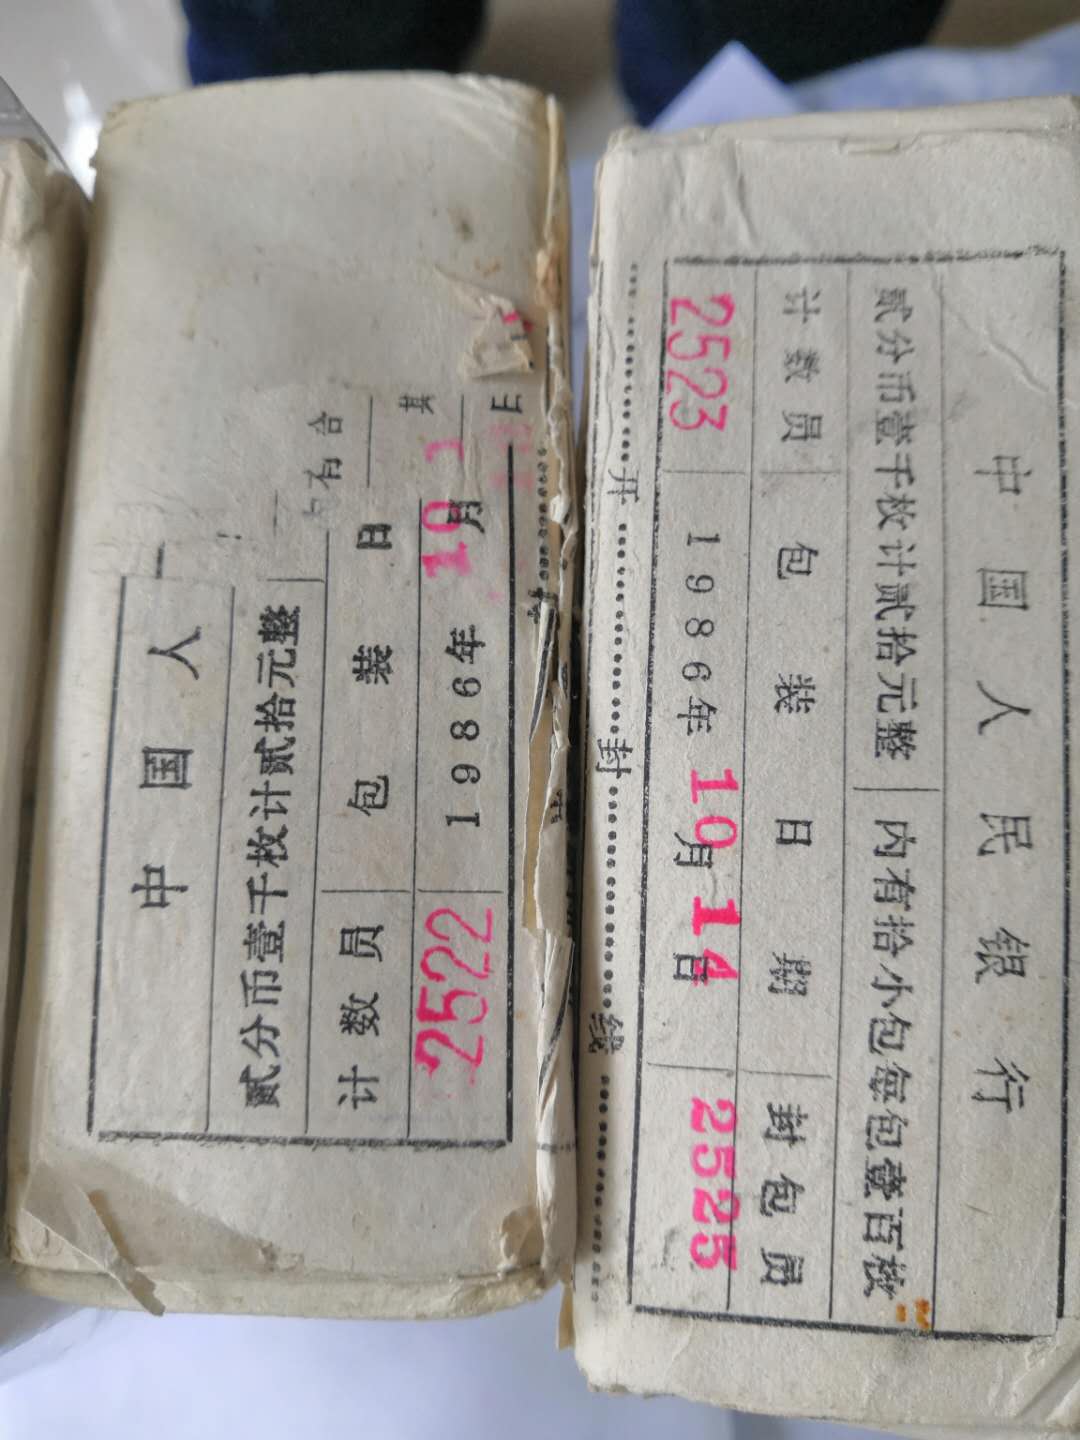 中国人
贰分币壹千枚计贰拾元整
有
计数员 包装日
2522 1986年10月 日
封
中国人民银行
贰分币壹千枚计贰拾元整 内有拾小包每包壹百枚
计数员 包装日期 封包员
2523 1986年10月14日 2525
开封线